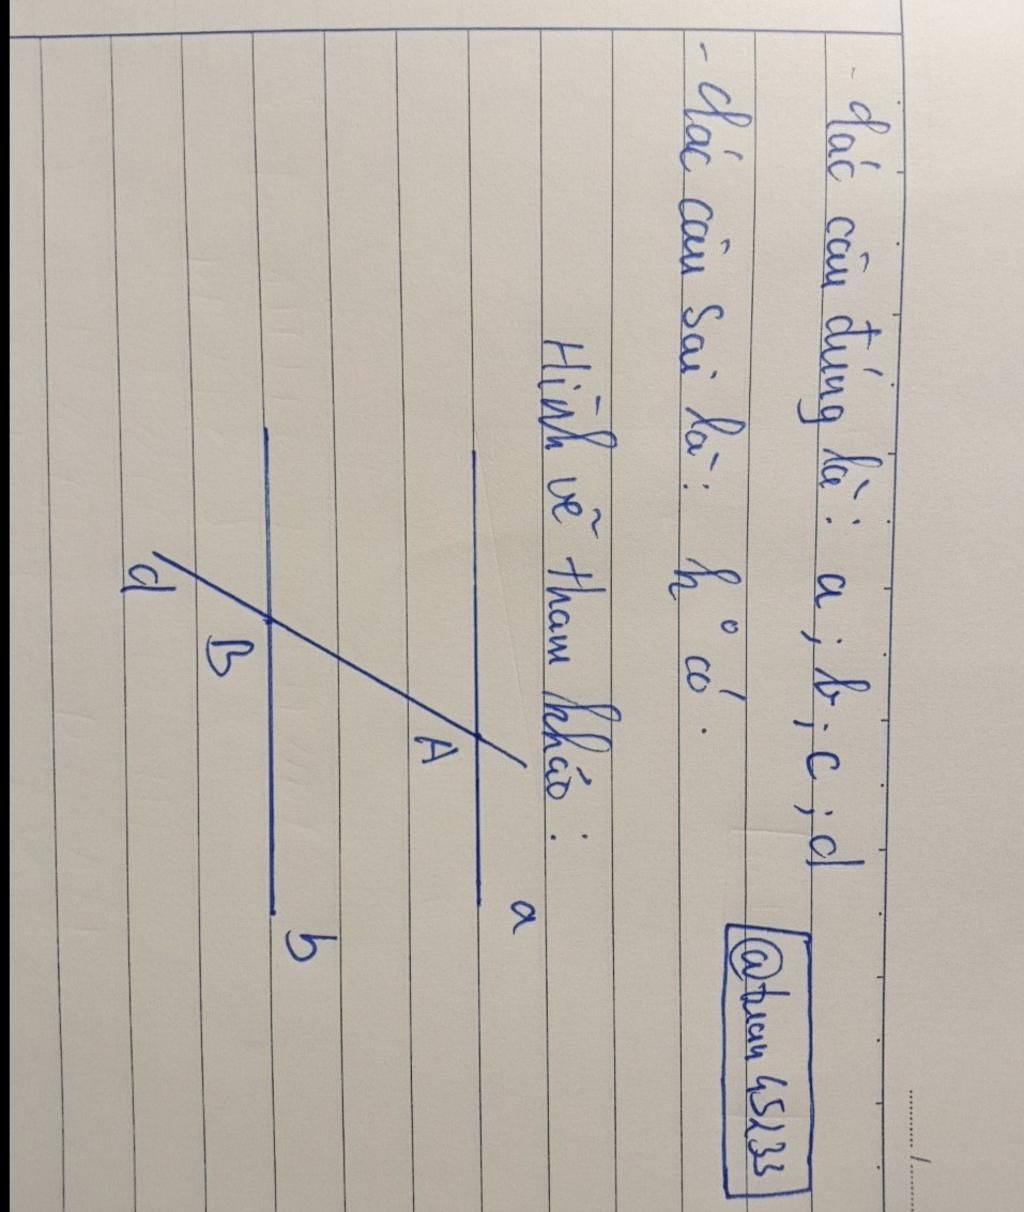 - các câu đúng là: a; b; c; d
- các câu sai là: k° có.
Hình vẽ tham khảo:
a
A
B
b
d